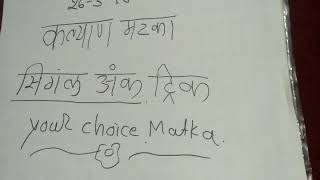 कल्याण मटका
सिगंल अंक ट्रिक
your choice Matka.